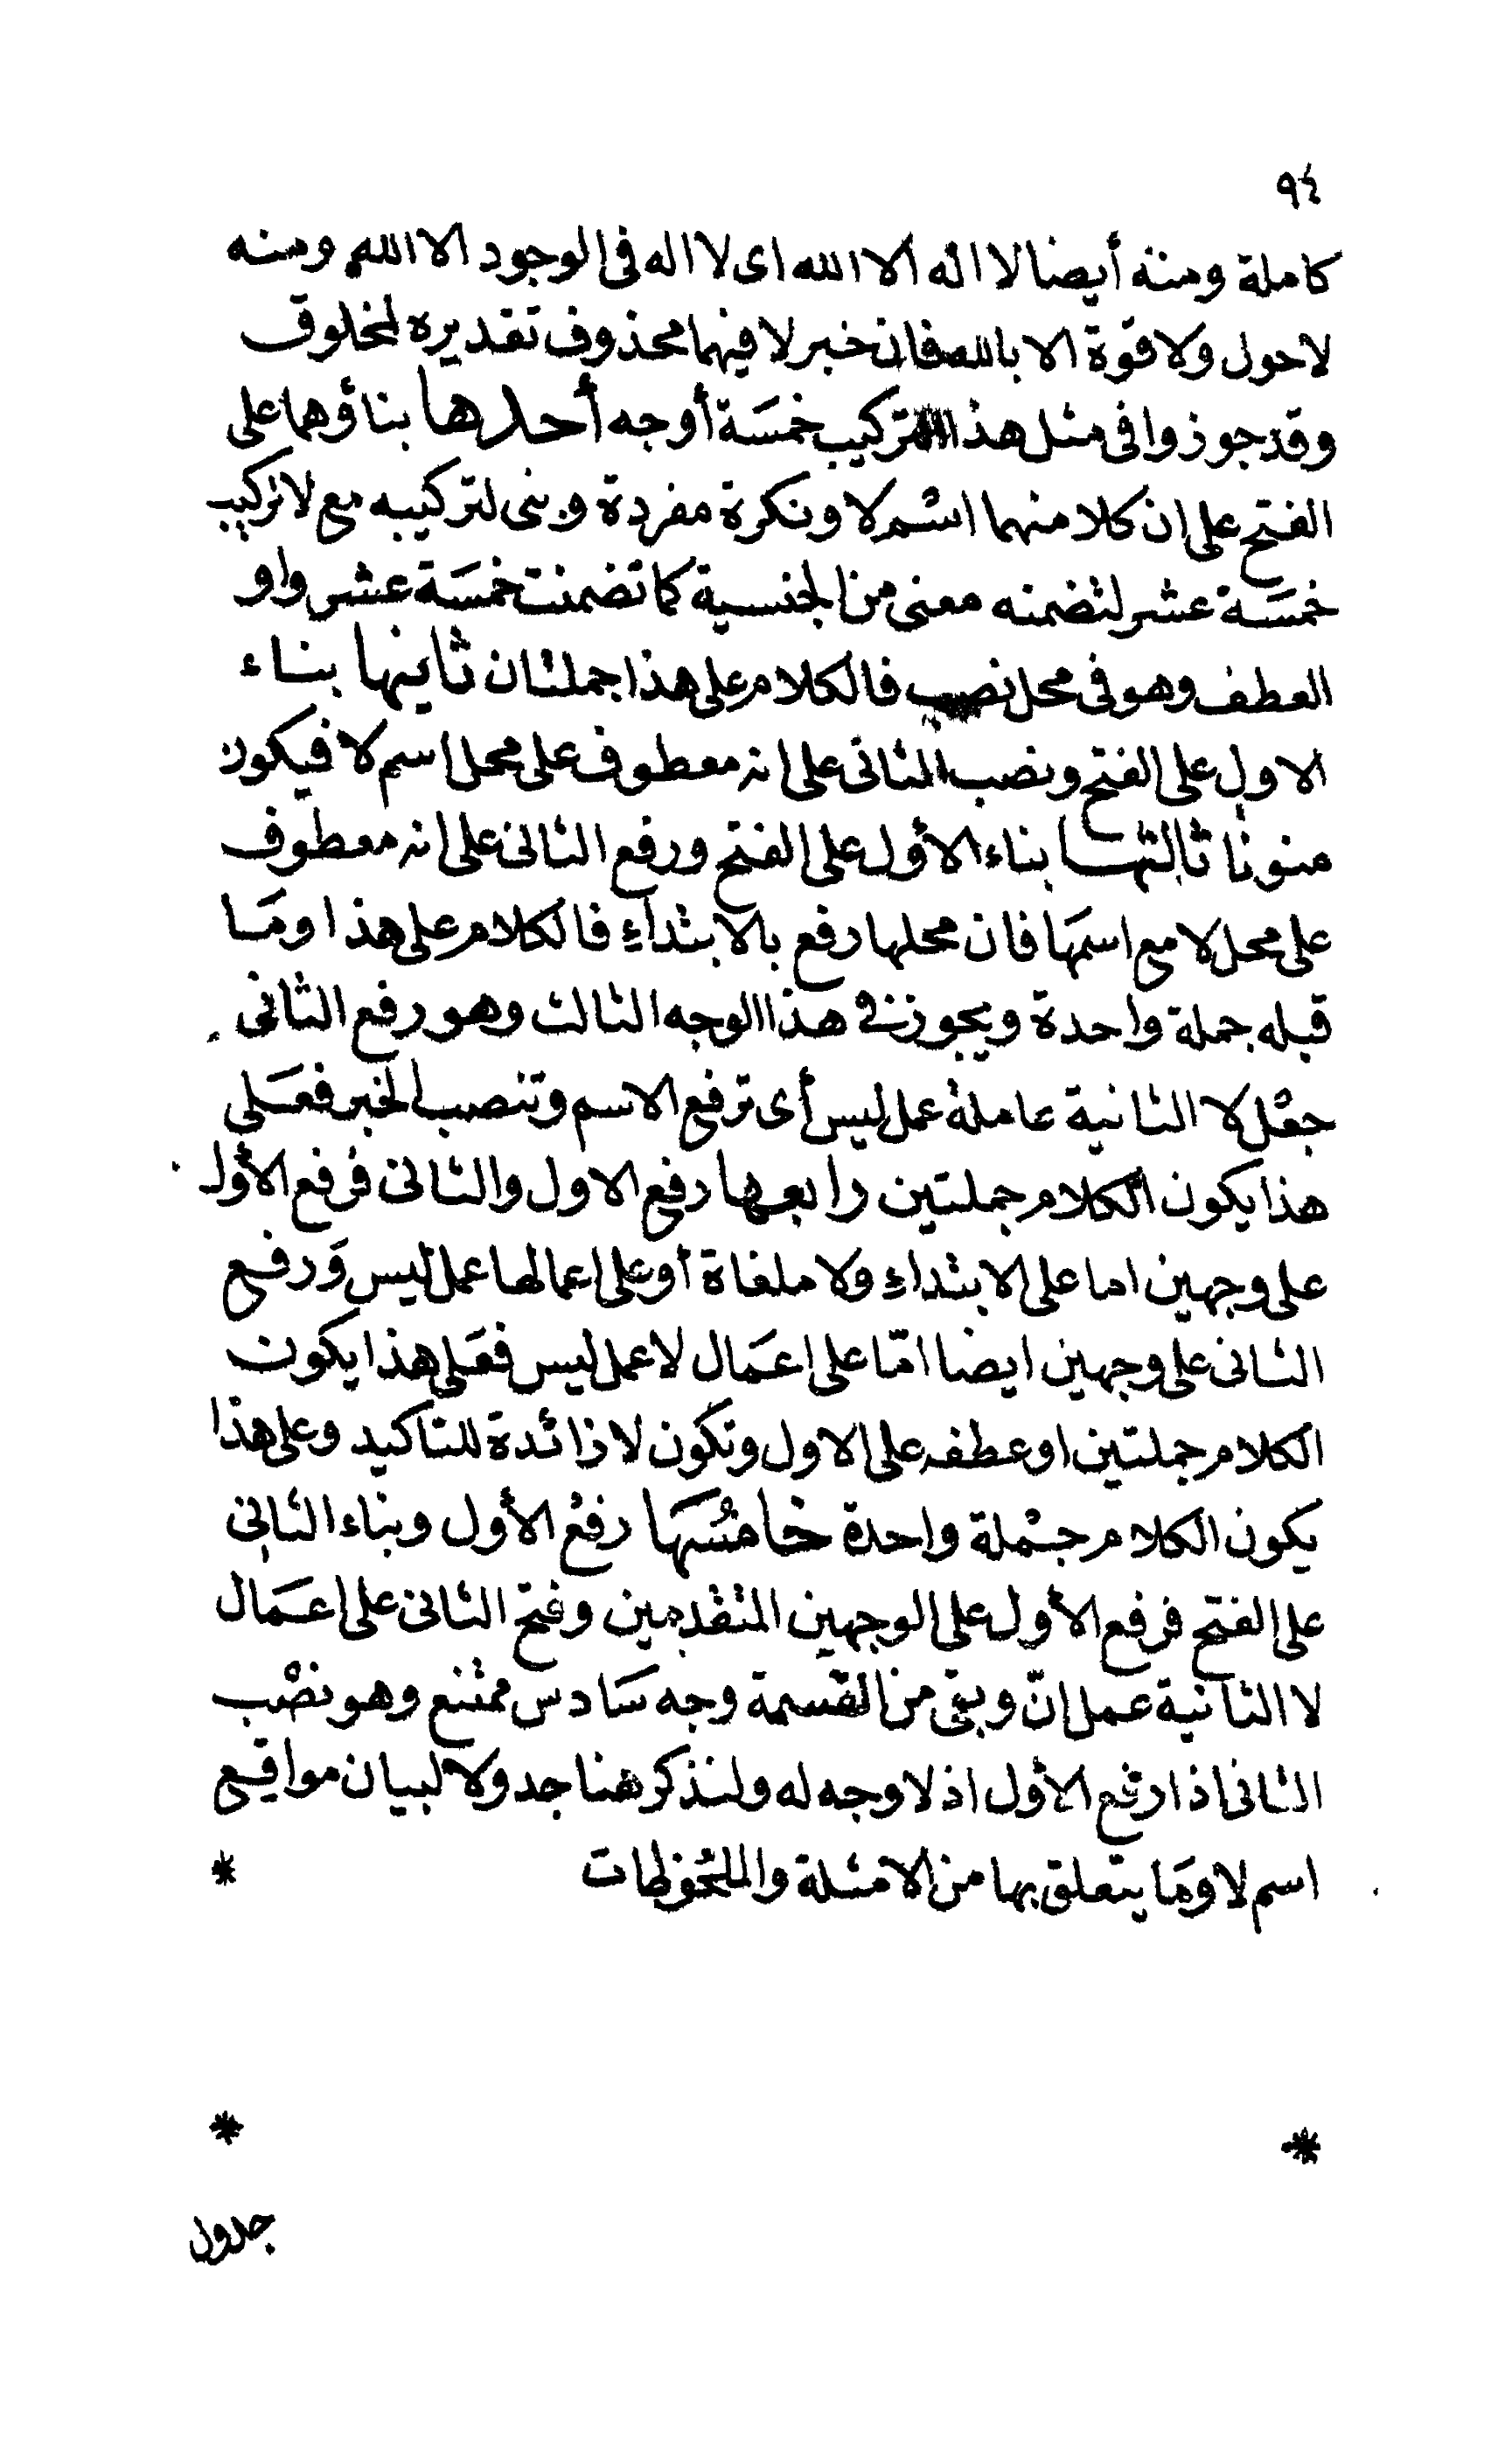 ٩٤
كاملة ومنه أيضا لا اله الا الله اى لا اله فى الوجود الا الله ومنه
لاحول ولا قوة الا بالله فان خبر لا فيهما محذوف تقديره لمخلوق
وقد جوزوا فى مثل هذا التركيب خمسَة أوجه أحدها بناؤهما على
الفتح على ان كلا منهما اسْم لا ونكرة مفردة وبنى لتركيبه مع لا تركيب
خمسَة عشر لتضمنه معنى من الجنسية كما تضمنت خمسَة عشر واو
العطف وهو فى محل نصب فالكلام على هذا جملتان ثانيها بناء
الاول على الفتح ونصب الثانى على انه معطوف على محل اسم لا فيكون
منونا ثالثها بناء الأول على الفتح ورفع الثانى على انه معطوف
على محل لا مع اسمَها فان محلها رفع بالابتداءِ فالكلام على هذا ومَا
قبله جملة واحدة ويجوز فى هذا الوجه الثالث وهو رفع الثانى
جعْل لا الثانية عاملة عمل ليس أى ترفع الاسم وتنصب الخبر فعَلى
هذا يكون الكلام جملتين رابعها رفع الاول والثانى فرفع الأول
على وجهين اما على الابتداءِ ولا ملغاة أو على اعمالها عمل ليس وَرفع
الثانى على وجهين ايضا امّا على اعمَال لا عمل ليس فعَلى هذا يكون
الكلام جملتين او عطفه على الاول وتكون لا زائدة للتاكيد وعلى هذا
يكون الكلام جمْلة واحدة خامسُهَا رفعْ الأول وبناء الثانى
على الفتح فرفع الأول على الوجهين المتقدمين وفتح الثانى على اعمَال
لا الثانية عمل انّ وبقى من القسمة وجه سَادس ممتنع وهو نصْب
الثانى اذا رفع الأول اذ لا وجه له ولنذكر هنا جدولا لبيان مواقع
اسم لا ومَا يتعلق بها من الامثلة والملحُوظات *
* *
جدول